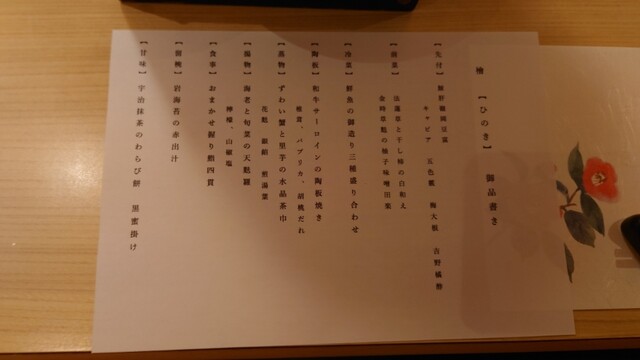 檜 【ひのき】 御品書き
【先付】鮟肝最岡豆富
キャビア 五色霰 梅大根 吉野橘酢
【前菜】法蓮草と干し柿の白和え
金時草麩の柚子味噌田楽
【冷菜】鮮魚の御造り三種盛り合わせ
【陶板】和牛サーロインの陶板焼き
椎茸、パプリカ、胡桃だれ
【蒸物】ずわい蟹と里芋の水晶茶巾
花麩 銀餡 煎湯葉
【揚物】海老と旬菜の天麩羅
檸檬、山椒塩
【食事】おまかせ握り鮨四貫
【留椀】岩海苔の赤出汁
【甘味】宇治抹茶のわらび餅 黒蜜掛け